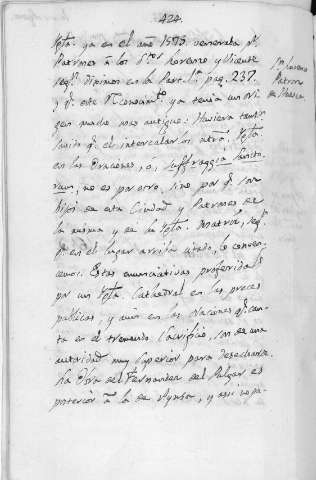 424.
Ygla. ya en el año 1573 veneraba pr.
Patronos à los Stos. Lorenzo y Vicente
segn. diximos en la Part. pag. 237.
y qe. este reconocimto. ya tenia un ori-
gen mucho mas antiguo: Huviera tam-
qe. el intercalarlos ntra. Ygla.
en las Oraciones, ò, Suffragia Sancto-
rum, no es por otro, sino por qe. son
hijos de esta Ciudad y Patronos de
la misma y de su Ygla. Matriz, segn.
qe. en el lugar arriba citado, lo conven-
cemos. Estas enunciativas proferidas
pr. una Ygla. Cathedral en las preces
publicas, y aun en las oraciones qe. can-
ta en el tremendo Sacrificio, son de una
autoridad muy superior para desecharse.
La Obra de Fernandez del Pulgar es
posterior à la de Aynsa, y assi no pu-
Sn. Lorenzo
Patron
de Huesca